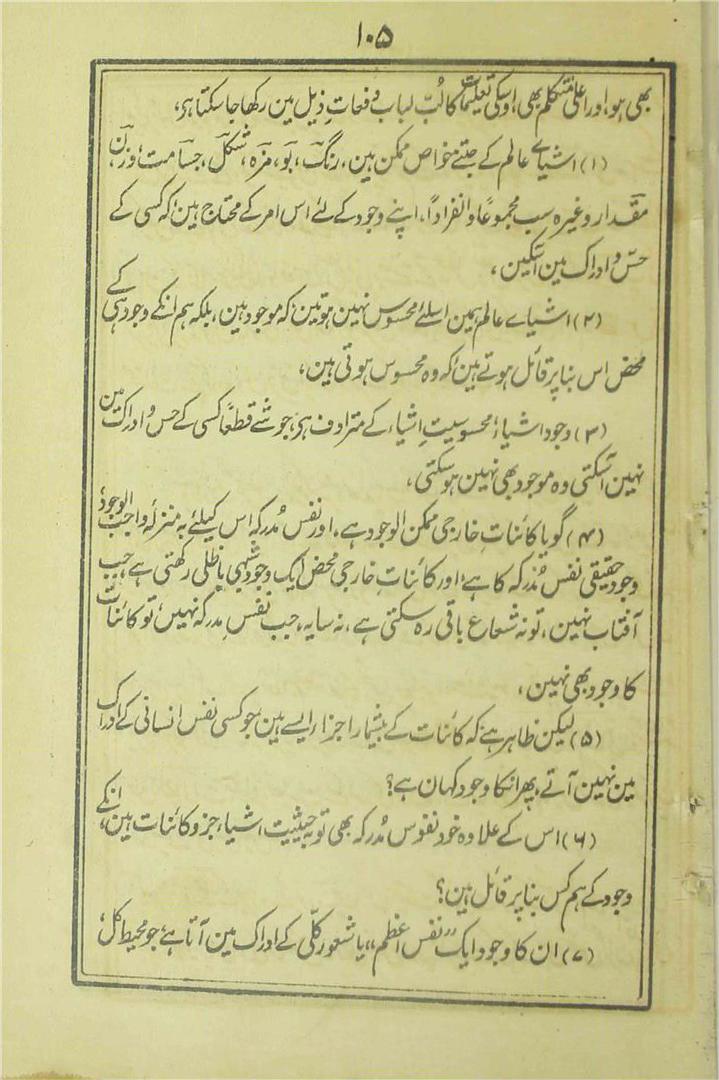 ۱۰۵
بھی ہو اور اعلیٰ متکلم بھی، اوسکی تعلیمات کا لُبّ لباب دفعاتِ ذیل مین رکھا جا سکتا ہی،
(۱) اشیاے عالم کے جتنے خواص ممکن ہین، رنگ، بو، مزہ، شکل، جسامت، وزن،
مقدار وغیرہ سب مجموعاً و انفراداً، اپنے وجود کے لئے اس امر کے محتاج ہین کہ کسی کے
حسّ و ادراک مین آسکین،
(۲) اشیاے عالم ہمین اسلئے محسوس نہین ہوتین کہ موجود ہین، بلکہ ہم انکے وجود ہی کے
محض اس بنا پر قائل ہوتے ہین کہ وہ محسوس ہوتی ہین،
(۳) وجود اشیاء محسوسیتِ اشیاء کے مترادف ہی، جو شے قطعاً کسی کے حس و ادراک مین
نہین آسکتی وہ موجود بھی نہین ہو سکتی،
(۴) گویا کائناتِ خارجی ممکن الوجود ہے، اور نفس مُدرکہ اس کیلئے بہ منزلۂ واجب الوجود
وجود حقیقی نفس مُدرکہ کا ہے، اور کائناتِ خارجی محض ایک وجود شبہی یا ظلی رکھتی ہے، جب
آفتاب نہین، تو نہ شعاع باقی رہ سکتی ہے، نہ سایہ، جب نفس مدرکہ نہین، تو کائنات
کا وجود بھی نہین،
(۵) لیکن ظاہر ہے کہ کائنات کے بیشمار اجزا، ایسے ہین، جو کسی نفس انسانی کے ادراک
مین نہین آتے، پھر انکا وجود کہان ہے؟
(۶) اس کے علاوہ خود نفوس مُدرکہ بھی تو بہ حیثیت اشیاء جزو کائنات ہین، انکے
وجود کے ہم کس بنا پر قائل ہین؟
(۷) ان کا وجود ایک "نفس اعظم" یا شعور کلّی کے ادراک مین آتا ہے، جو محیط کل،